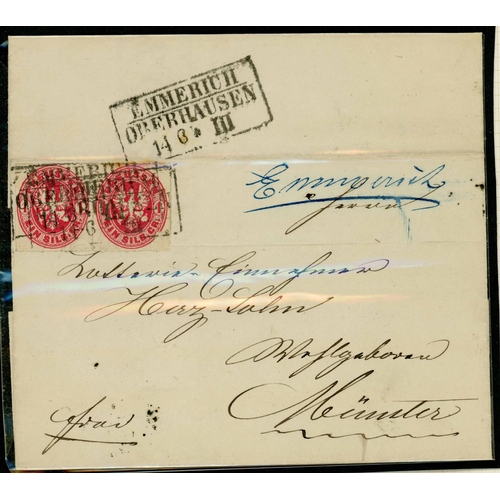 EMMERICH
OBERHAUSEN
14 6 * III
Emmerich
Herrn
EIN SILB.GR.
EIN SILB.GR.
Lotterie-Einnehmer
Herz-Sohn
Wohlgeboren
Münster
frei